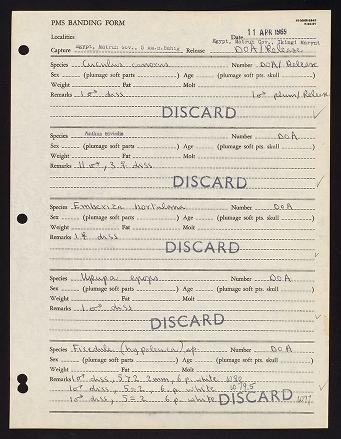 PMS BANDING FORM
Localities Date 11 APR 1969
Capture Egypt, Matrui Gov., Release Egypt, Matrui Gov., Ikingi Maryut
DOA/Release
Species Cuculus canorus Number DOA/Release
Sex (plumage soft parts ) Age (plumage soft pts. skull )
Weight Fat Molt
Remarks 1 o⃗ diss 1 o⃗ plum/Release
DISCARD
Species Anthus Number DOA
Sex (plumage soft parts ) Age (plumage soft pts. skull )
Weight Fat Molt
Remarks 11 ♂, 3 ♀ diss
DISCARD
Species Emberiza hortulana Number DOA
Sex (plumage soft parts ) Age (plumage soft pts. skull )
Weight Fat Molt
Remarks 1 ♀ diss
DISCARD
Species Upupa epops Number DOA
Sex (plumage soft parts ) Age (plumage soft pts. skull )
Weight Fat Molt
Remarks 1 ♂ diss
DISCARD
Species Ficedula (hypoleuca) sp. Number DOA
Sex (plumage soft parts ) Age (plumage soft pts. skull )
Weight Fat Molt
Remarks 1 ♂ diss, 5>2 2mm, 6 p. white
1 ♂ diss, 5=2, 6 p. white W79.5
1 ♂ diss, 5=2, 6 p. white DISCARD W77